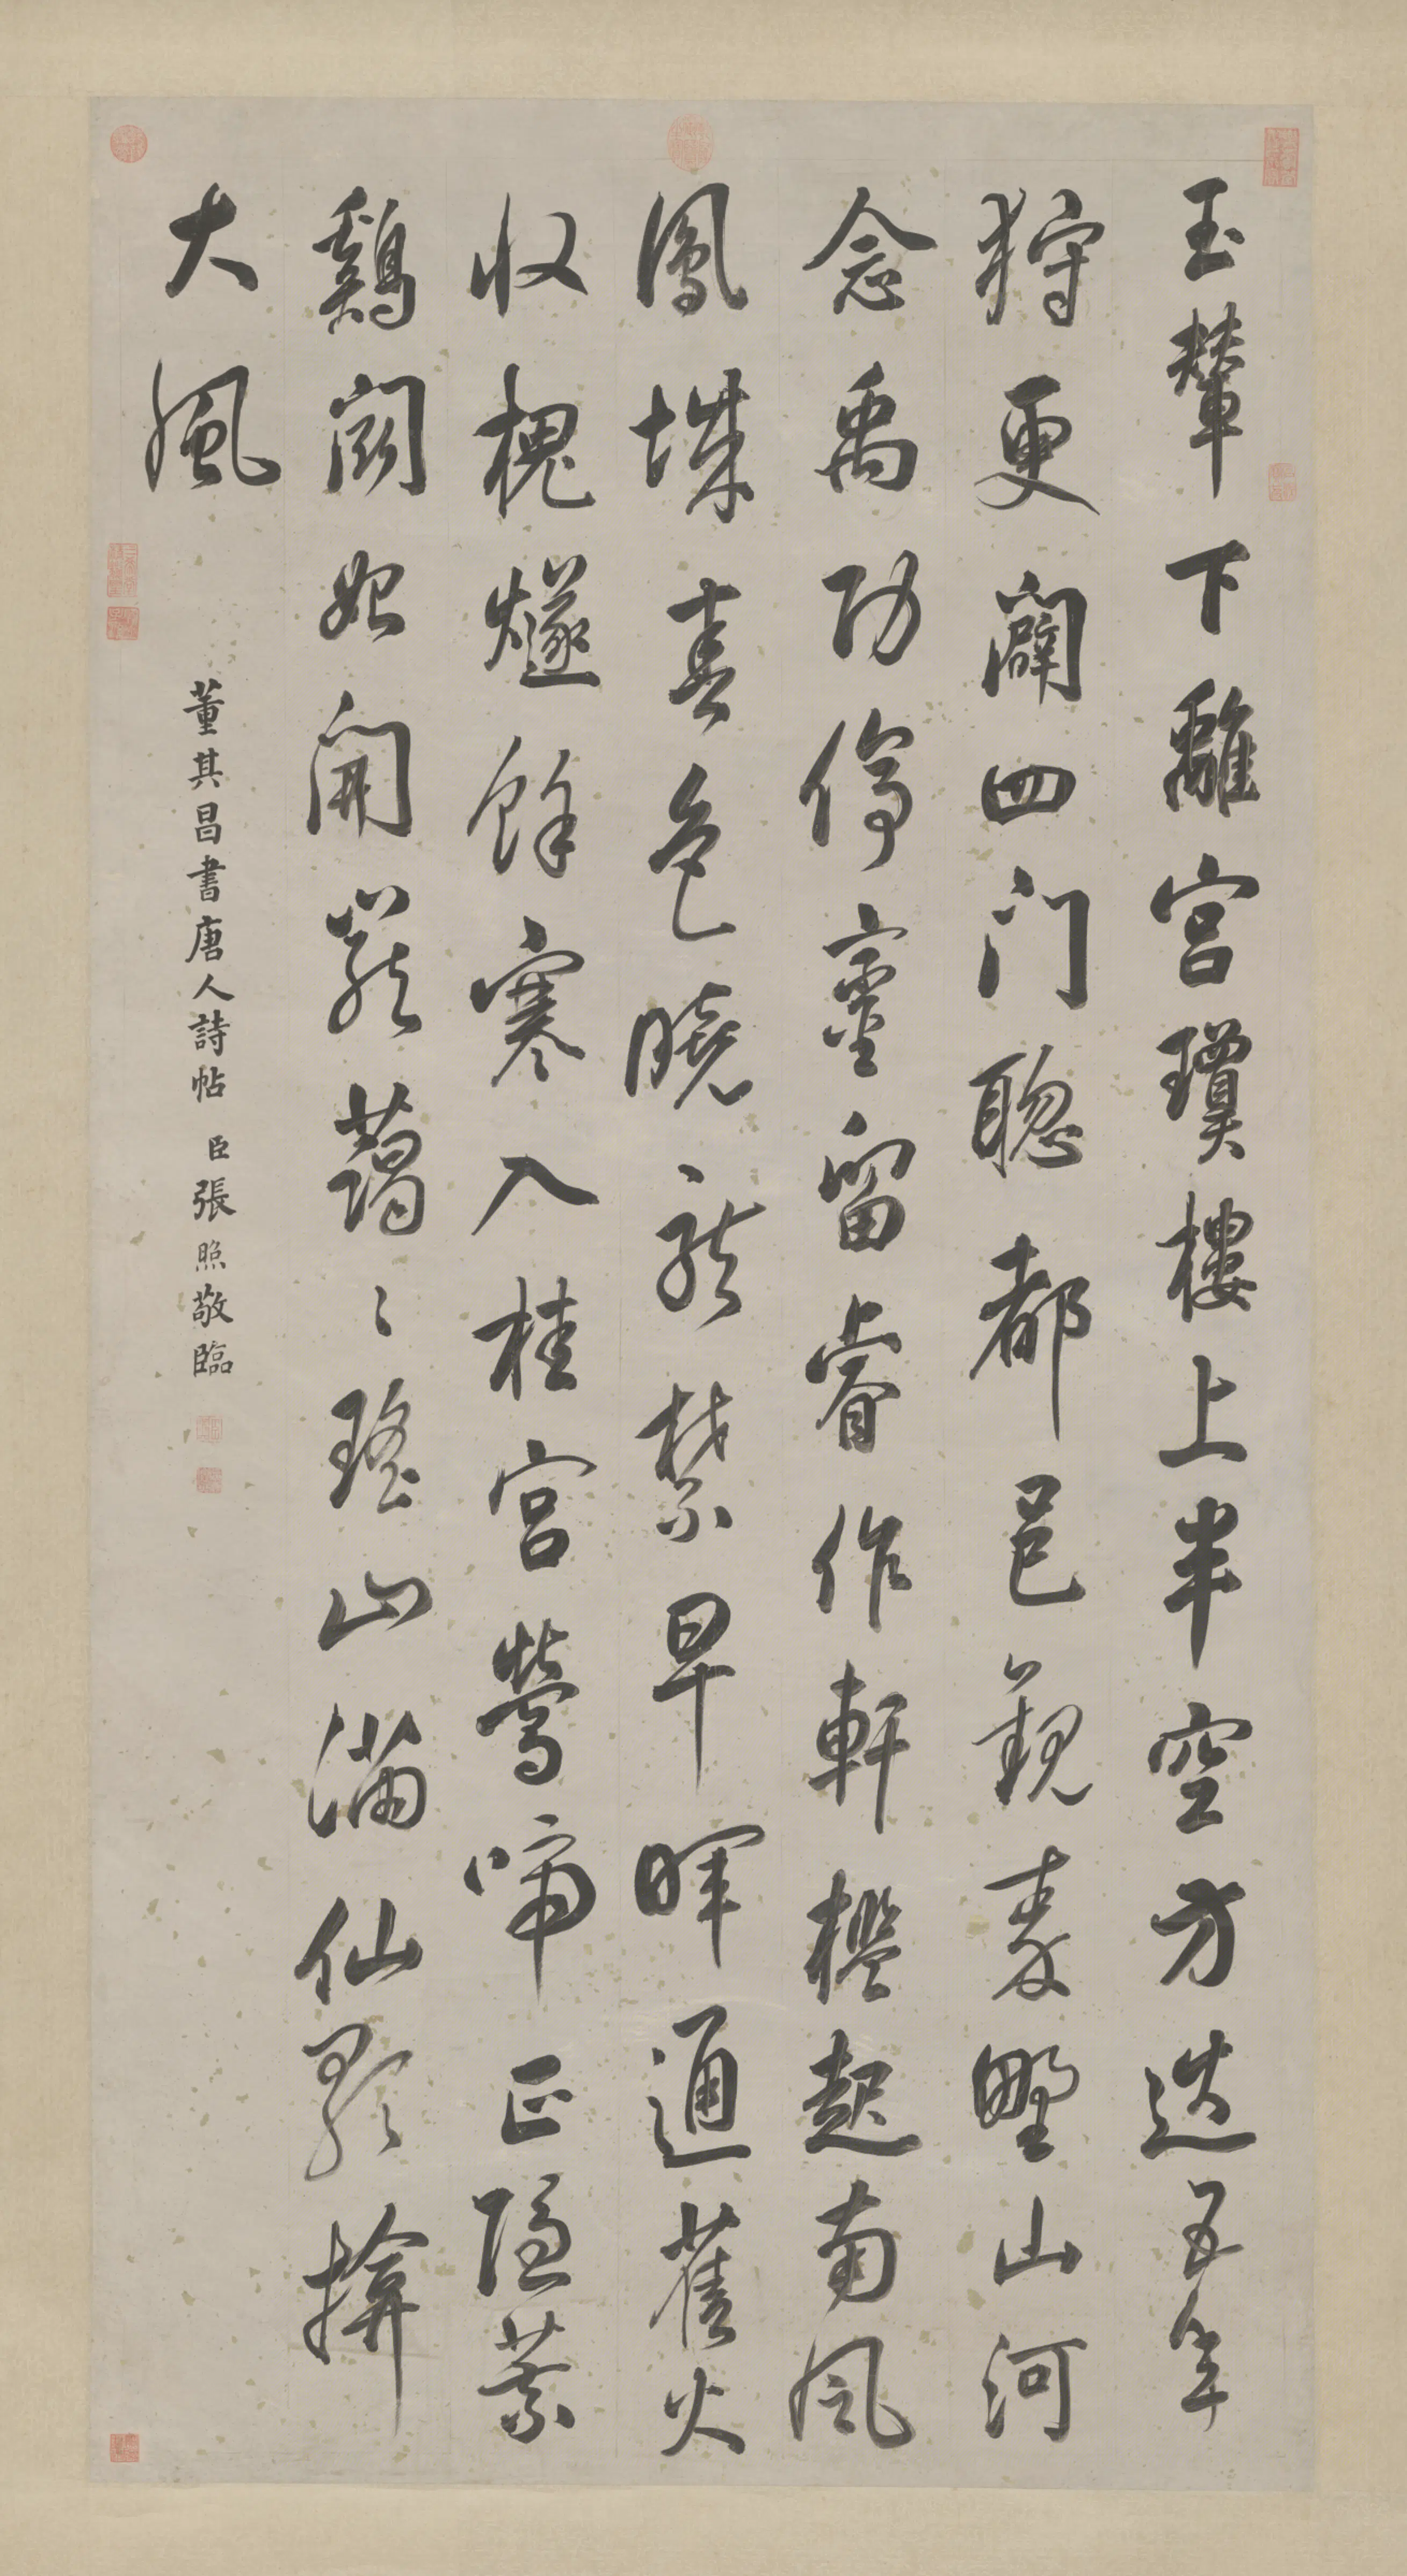 玉輦下離宮瓊樓上半空方巡五年
狩更闢四門聰都邑觀秦野山河
念禹功停鑾留睿作軒檻起南風
鳳城春色曉龍禁早暉通舊火
收槐燧餘寒入桂宮鶯啼正隱葉
鷄鬭始開籠藹〻瑤山滿仙歌揜
大風
董其昌書唐人詩帖 臣張照敬臨